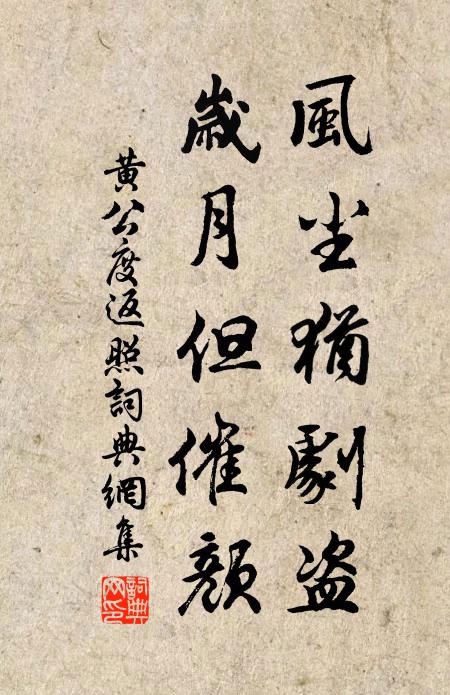 風尘猶劇盗
歲月但催顏
黄公度返照詞典網集
詞典网印